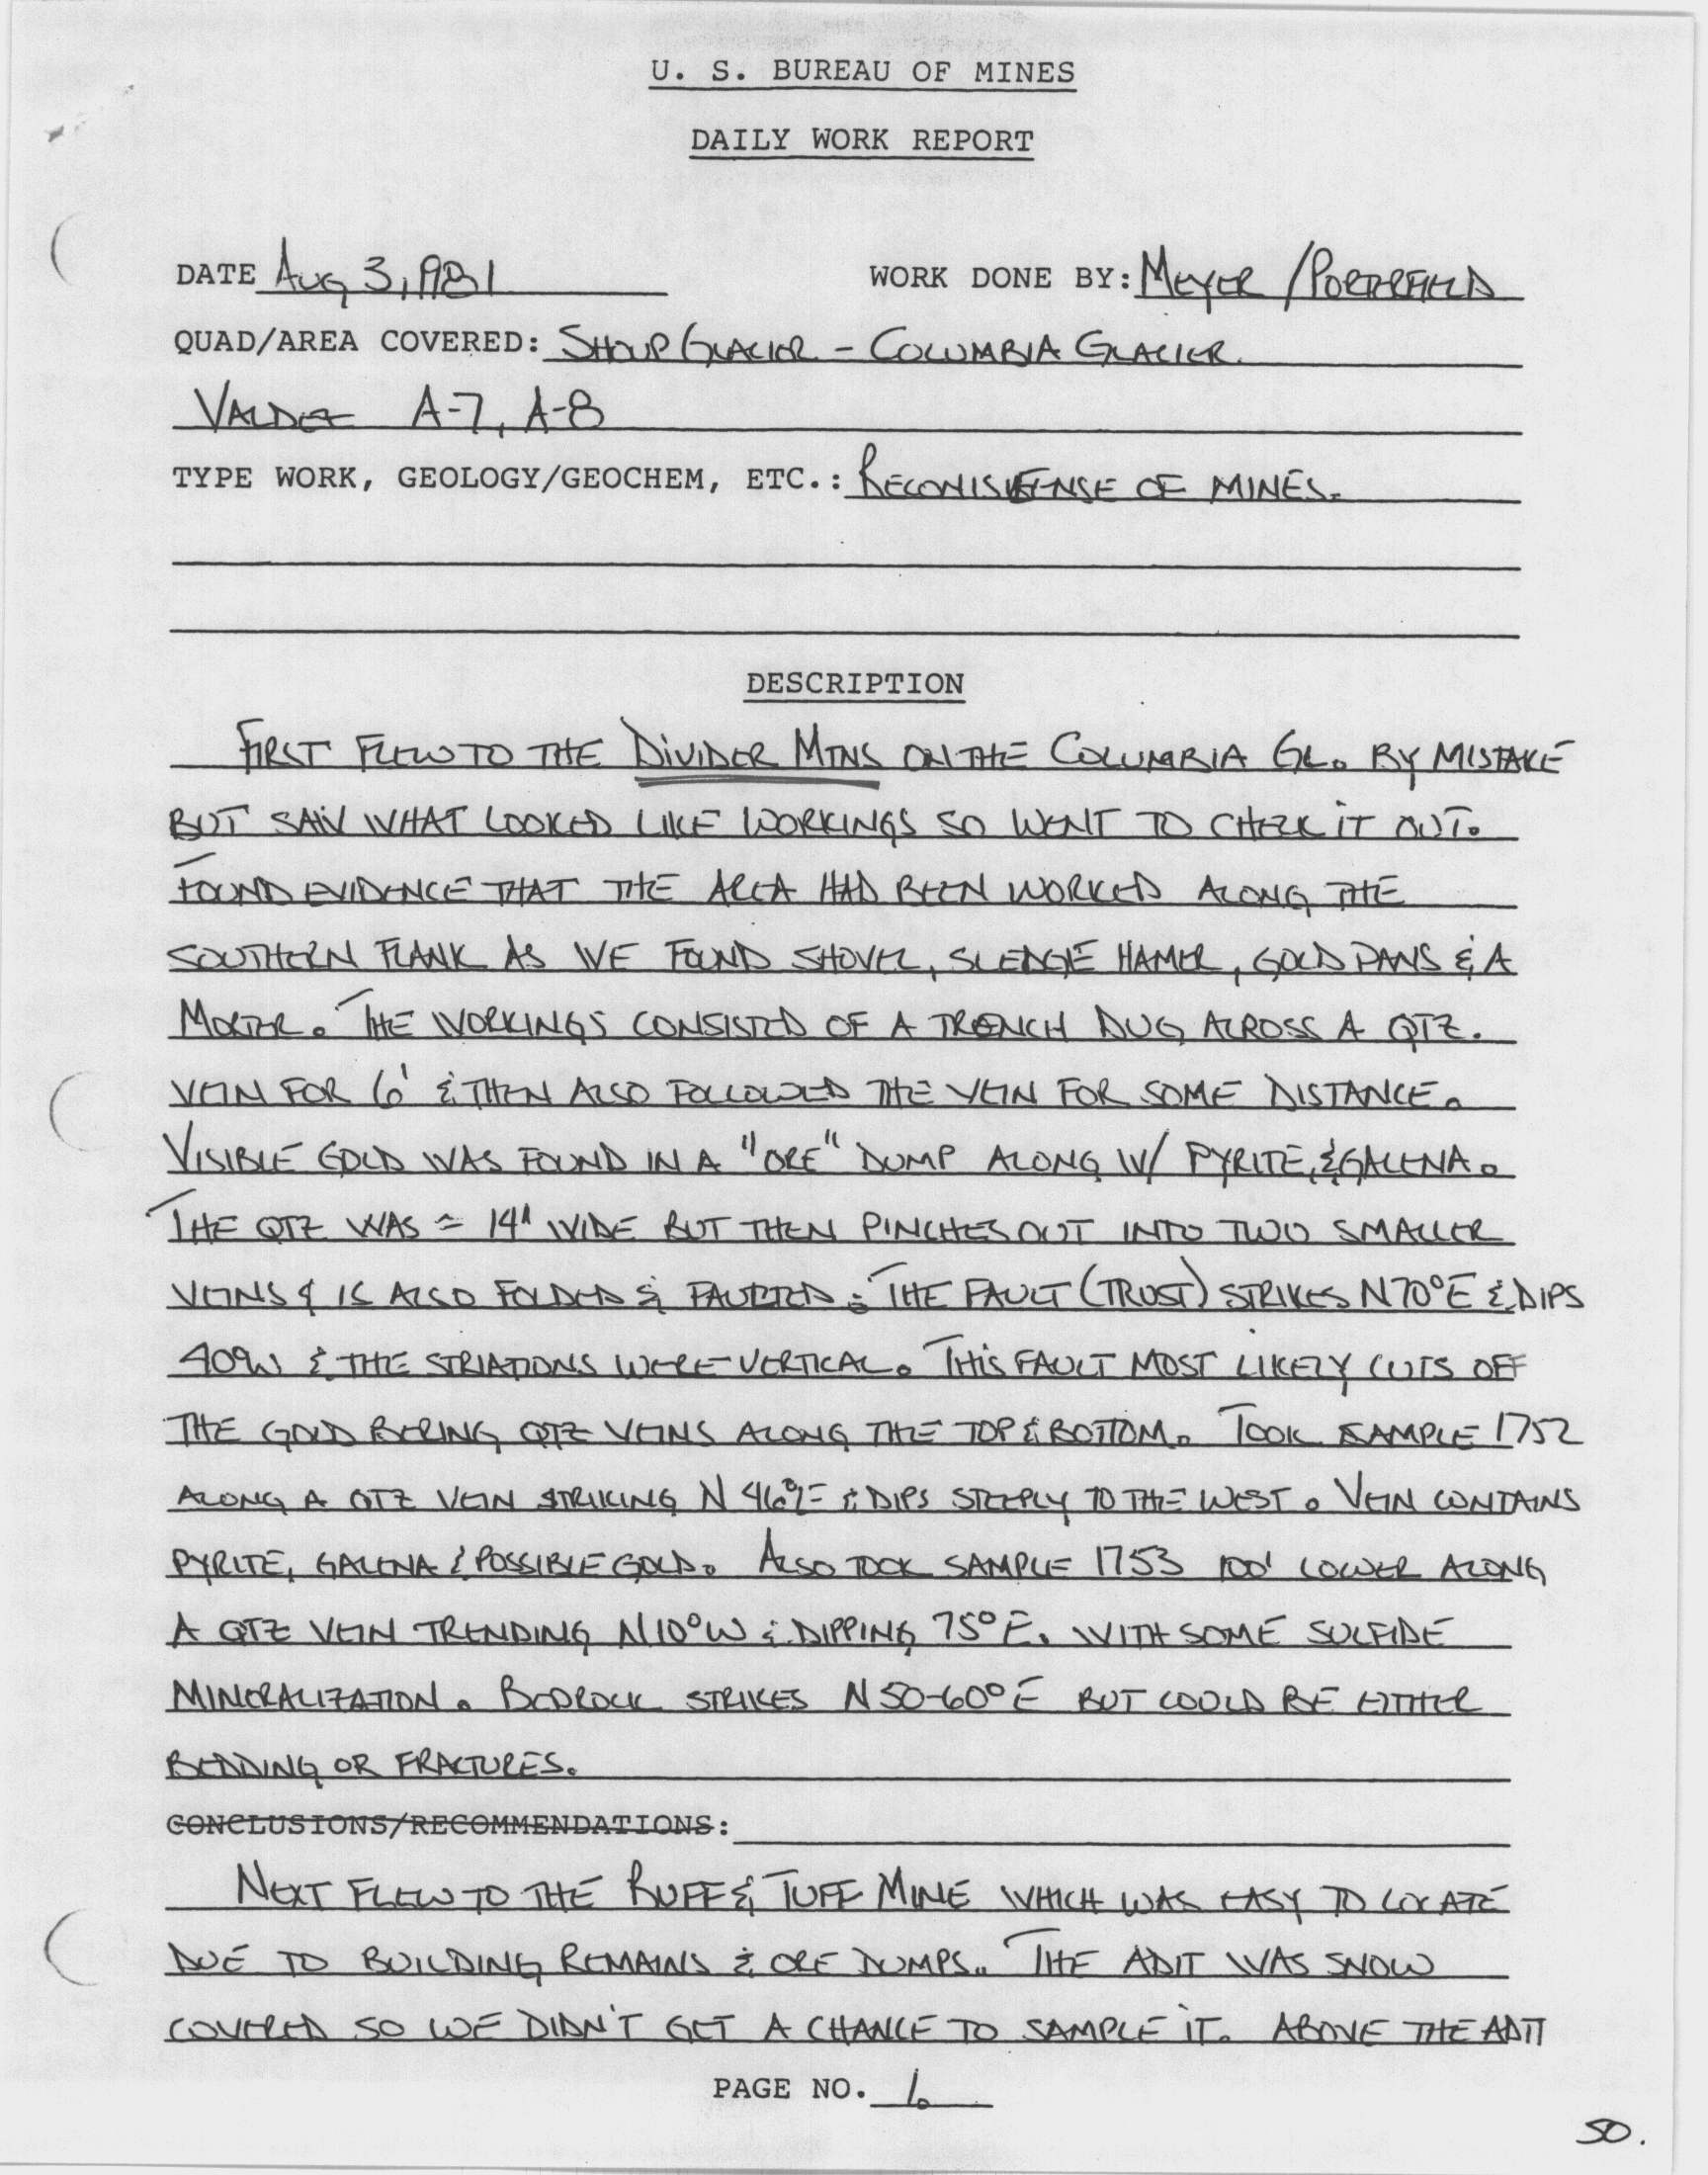 U. S. BUREAU OF MINES
DAILY WORK REPORT
DATE AUG 3, 1981 WORK DONE BY: MEYER / PORTERFIELD
QUAD/AREA COVERED: SHOUP GLACIER - COLUMBIA GLACIER.
VALDEZ A-7, A-8
TYPE WORK, GEOLOGY/GEOCHEM, ETC.: OF MINES.
DESCRIPTION
FIRST FLEW TO THE DIVIDER MTNS ON THE COLUMBIA GL. BY MISTAKE
BUT SAW WHAT LOOKED LIKE WORKINGS SO WENT TO CHECK IT OUT.
FOUND EVIDENCE THAT THE AREA HAD BEEN WORKED ALONG THE
SOUTHERN FLANK AS WE FOUND SHOVEL, SLEDGE HAMER, GOLD PANS & A
MORTER. THE WORKINGS CONSISTED OF A TRENCH DUG ACROSS A QTZ.
VEIN FOR 6' & THEN ALSO FOLLOWED THE VEIN FOR SOME DISTANCE.
VISIBLE GOLD WAS FOUND IN A "ORE" DUMP ALONG W/ PYRITE, & GALENA.
THE QTZ WAS ≈ 14" WIDE BUT THEN PINCHES OUT INTO TWO SMALLER
VEINS & IS ALSO FOLDED & FAULTED. THE FAULT (TRUST) STRIKES N70°E & DIPS
40°W & THE STRIATIONS WERE VERTICAL. THIS FAULT MOST LIKELY CUTS OFF
THE GOLD BERING QTZ VEINS ALONG THE TOP & BOTTOM. TOOK SAMPLE 1752
ALONG A QTZ VEIN STRIKING N 46°E & DIPS STEEPLY TO THE WEST. VEIN CONTAINS
PYRITE, GALENA & POSSIBLE GOLD. ALSO TOOK SAMPLE 1753 100' LOWER ALONG
A QTZ VEIN TRENDING N10°W & DIPPING 75°E. WITH SOME SULFIDE
MINERALIZATION. BEDROCK STRIKES N50-60°E BUT COULD BE EITHER
BEDDING OR FRACTURES.
CONCLUSIONS/RECOMMENDATIONS:
NEXT FLEW TO THE RUFF & TUFF MINE WHICH WAS EASY TO LOCATE
DUE TO BUILDING REMAINS & ORE DUMPS. THE ADIT WAS SNOW
COVERED SO WE DIDN'T GET A CHANCE TO SAMPLE IT. ABOVE THE ADIT
PAGE NO. 1.
50.